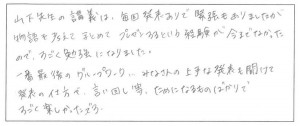 山下先生の講義は、毎回発表ありで緊張もありましたが
物語を考えてまとめて プレゼンするという経験が今までなかった
ので、すごく勉強になりました。
一番最後のグループワーク… みなさんの上手な発表も聞けて
発表の仕方や、言い回し等、ためになるものばかりで
すごく楽しかったです。